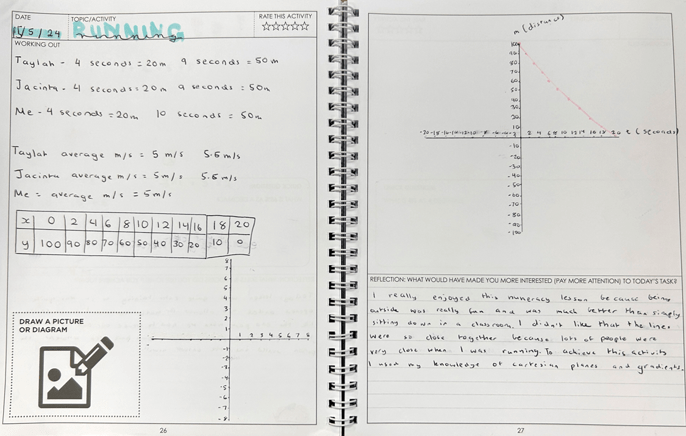 DATE
TOPIC/ACTIVITY
RATE THIS ACTIVITY
15/5/24 RUNNING
WORKING OUT
Taylah - 4 seconds = 20m 9 seconds = 50m
Jacinta - 4 seconds = 20m 9 seconds = 50m
Me - 4 seconds = 20m 10 seconds = 50m
Taylah average m/s = 5 m/s 5.6m/s
Jacinta average m/s = 5m/s 5.6m/s
Me = average m/s = 5m/s
x 0 2 4 6 8 10 12 14 16 18 20
y 100 90 80 70 60 50 40 30 20 10 0
8
7
6
5
4
3
2
1
1 2 3 4 5 6 7 8
-1
-2
-3
-4
-5
-6
-7
-8
DRAW A PICTURE
OR DIAGRAM
26
m (distance)
100
90
80
70
60
50
40
30
20
10
-20 -18 -16 -14 -12 -10 -8 -6 -4 -2 2 4 6 8 10 12 14 16 18 20 t (seconds)
-10
-20
-30
-40
-50
-60
-70
-80
-90
-100
REFLECTION: WHAT WOULD HAVE MADE YOU MORE INTERESTED (PAY MORE ATTENTION) TO TODAY'S TASK?
I really enjoyed this numeracy lesson because being
outside was really fun and was much better than simply
sitting down in a classroom. I didn't like that the lines
were so close together because lots of people were
very close when I was running. To achieve this activity
I used my knowledge of cartesian planes and gradients.
27